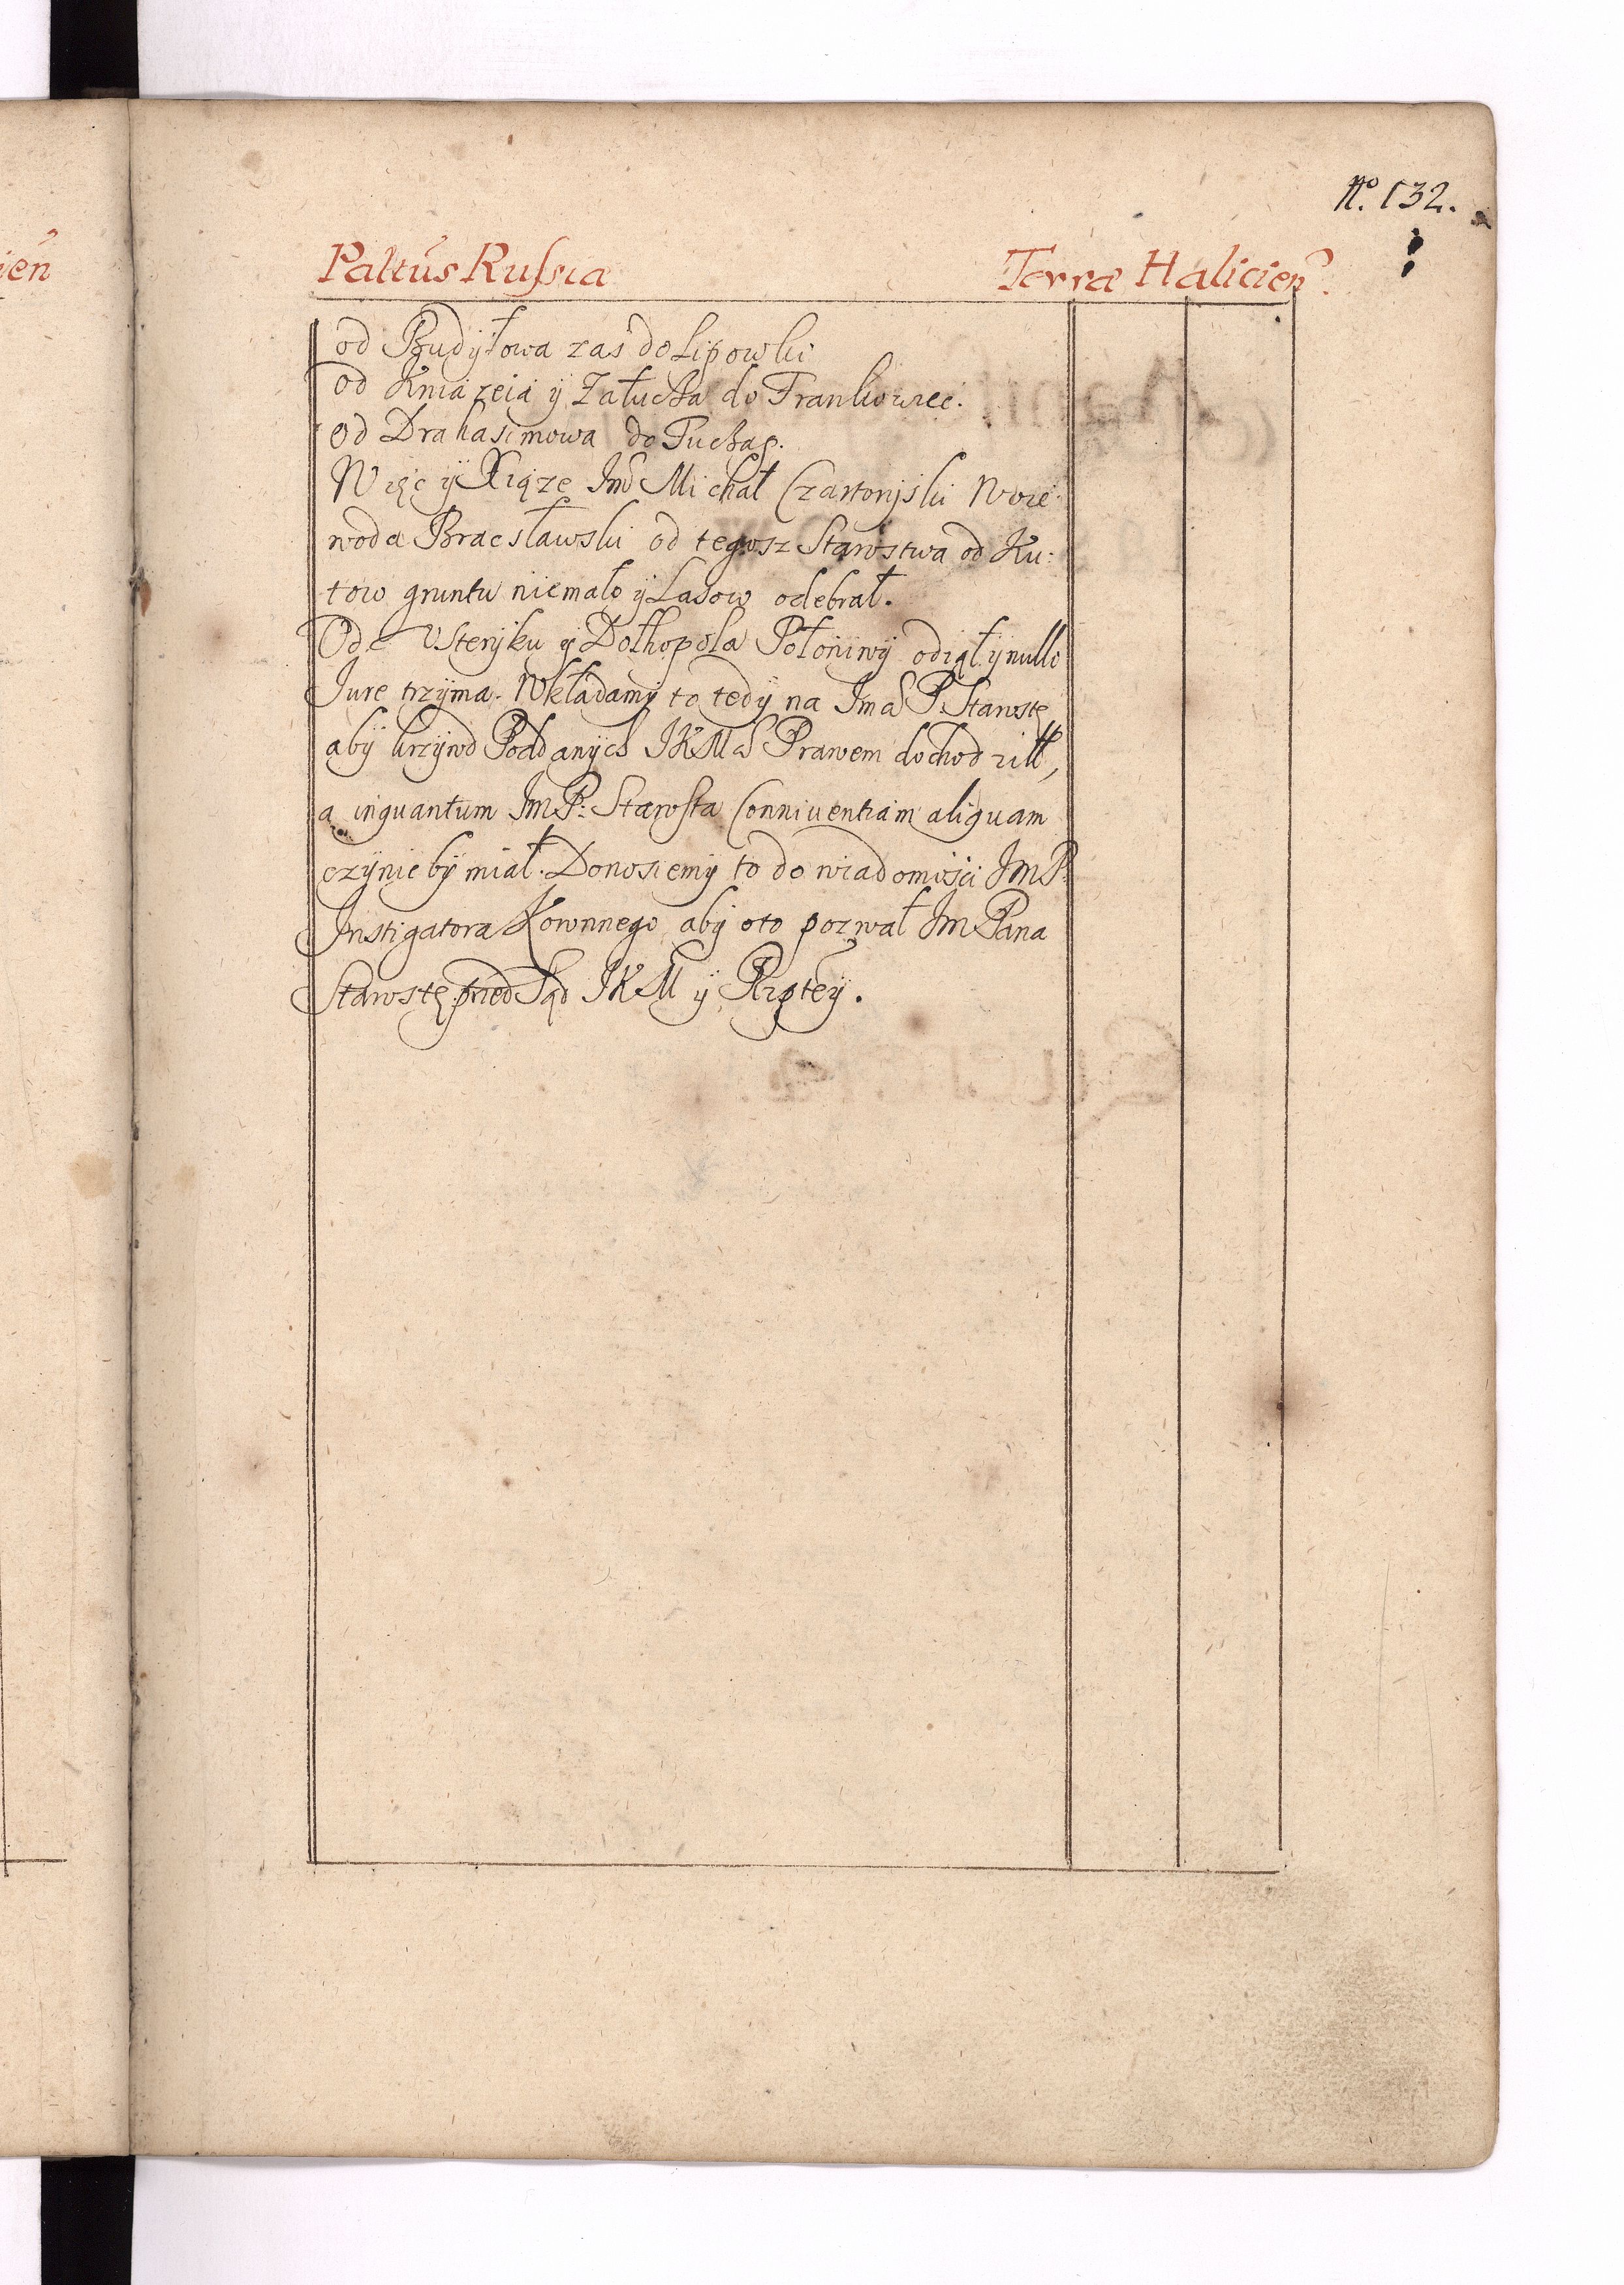 №. 132.
ień
Paltũs Russia Terræ Halicień.
od Budyłowa zas do Lipowki
od Kniazeia ÿ Załucża do Trankowiec.
od Drahasimowa do Tuchap.
Więc ÿ Xiąze Imć Michał Czartoryski Woie:
woda Bracsławski od tegosz Starostwa od Ku:
tow gruntu niemało ÿ Lasow odebrał.
Od Vsteryku ÿ Dołhopola Połoniny odiął ÿ nullo
Iure trzyma. Wkładamy to tedÿ na Imci P. Starostę
abÿ krzywd Poddanych IKMći Prawem dochodził,
a inquantum Im P: Starosta Conniventiam aliquam
czynic bÿ miał. Donosiemÿ to do wiadomości Im P:
Instigatora Koronnego, aby oto pozwał Im Pana
Starostę przed Sąd IKM ÿ Rzptey.